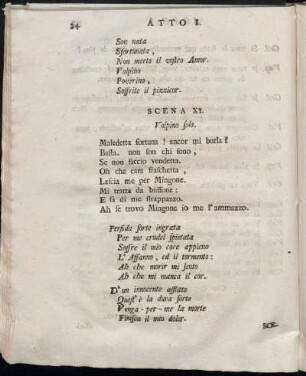 24 ATTO I.
Son nata
Sfortunata,
Non merto il vostro Amor.
Volpino
Poverino,
Soffrite il pizzicor.
SCENA XI.
Volpino solo.
Maledetta fortuna! ancor mi burla?
Basta. non son chi sono,
Se non faccio vendetta.
Oh che cara fraschetta,
Lascia me per Mingone.
Mi tratta da buffone:
E fà di me strappazzo.
Ah se trovo Mingone io me l'ammazzo.
Perfida sorte ingrata
Per me crudel spietata
Soffre il mio core appieno
L'Affanno, ed il tormento:
Ah che morir mi sento
Ah che mi manca il cor.
D'un innocente affetto
Quest' è la dura sorte
Venga-per-me la morte
Finisca il mio dolor.
SCE.